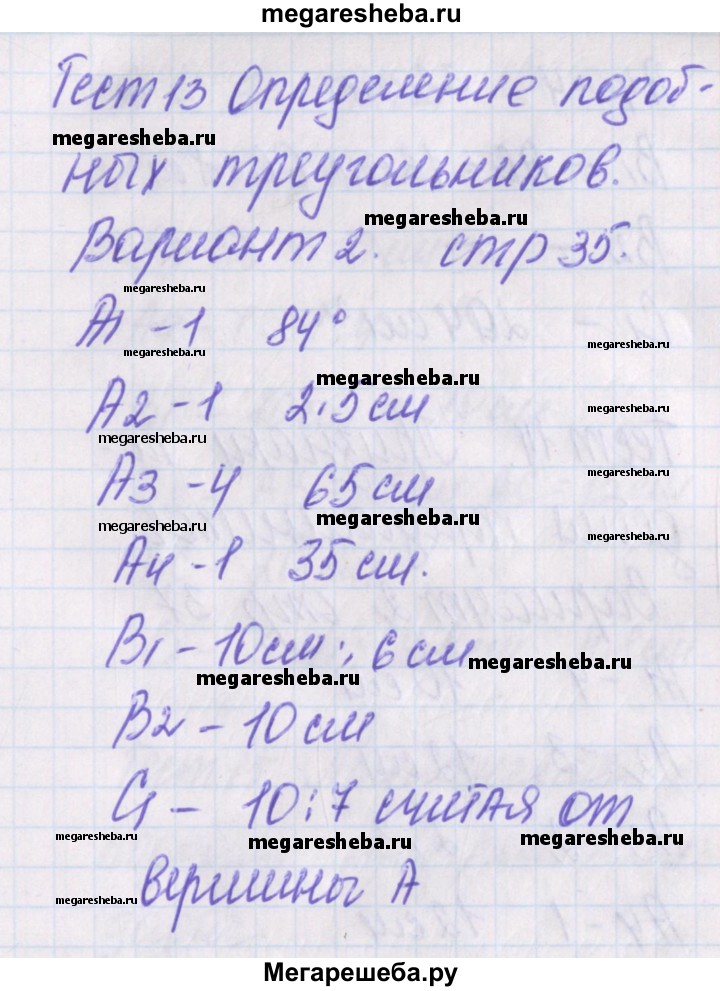 megaresheba.ru
Тест 13 Определение подоб-
megaresheba.ru
ных треугольников.
megaresheba.ru
Вариант 2. стр 35.
megaresheba.ru
А1 - 1 84°
megaresheba.ru
megaresheba.ru
megaresheba.ru
А2 - 1 2,5 см
megaresheba.ru
megaresheba.ru
megaresheba.ru
А3 - 4 65 см
megaresheba.ru
megaresheba.ru
megaresheba.ru
А4 - 1 35 см.
В1 - 10 см; 6 см
megaresheba.ru
megaresheba.ru
В2 - 10 см
С1 - 10:7 считая от
megaresheba.ru
megaresheba.ru
megaresheba.ru
вершины А
megaresheba.ru
Мегарешеба.ру